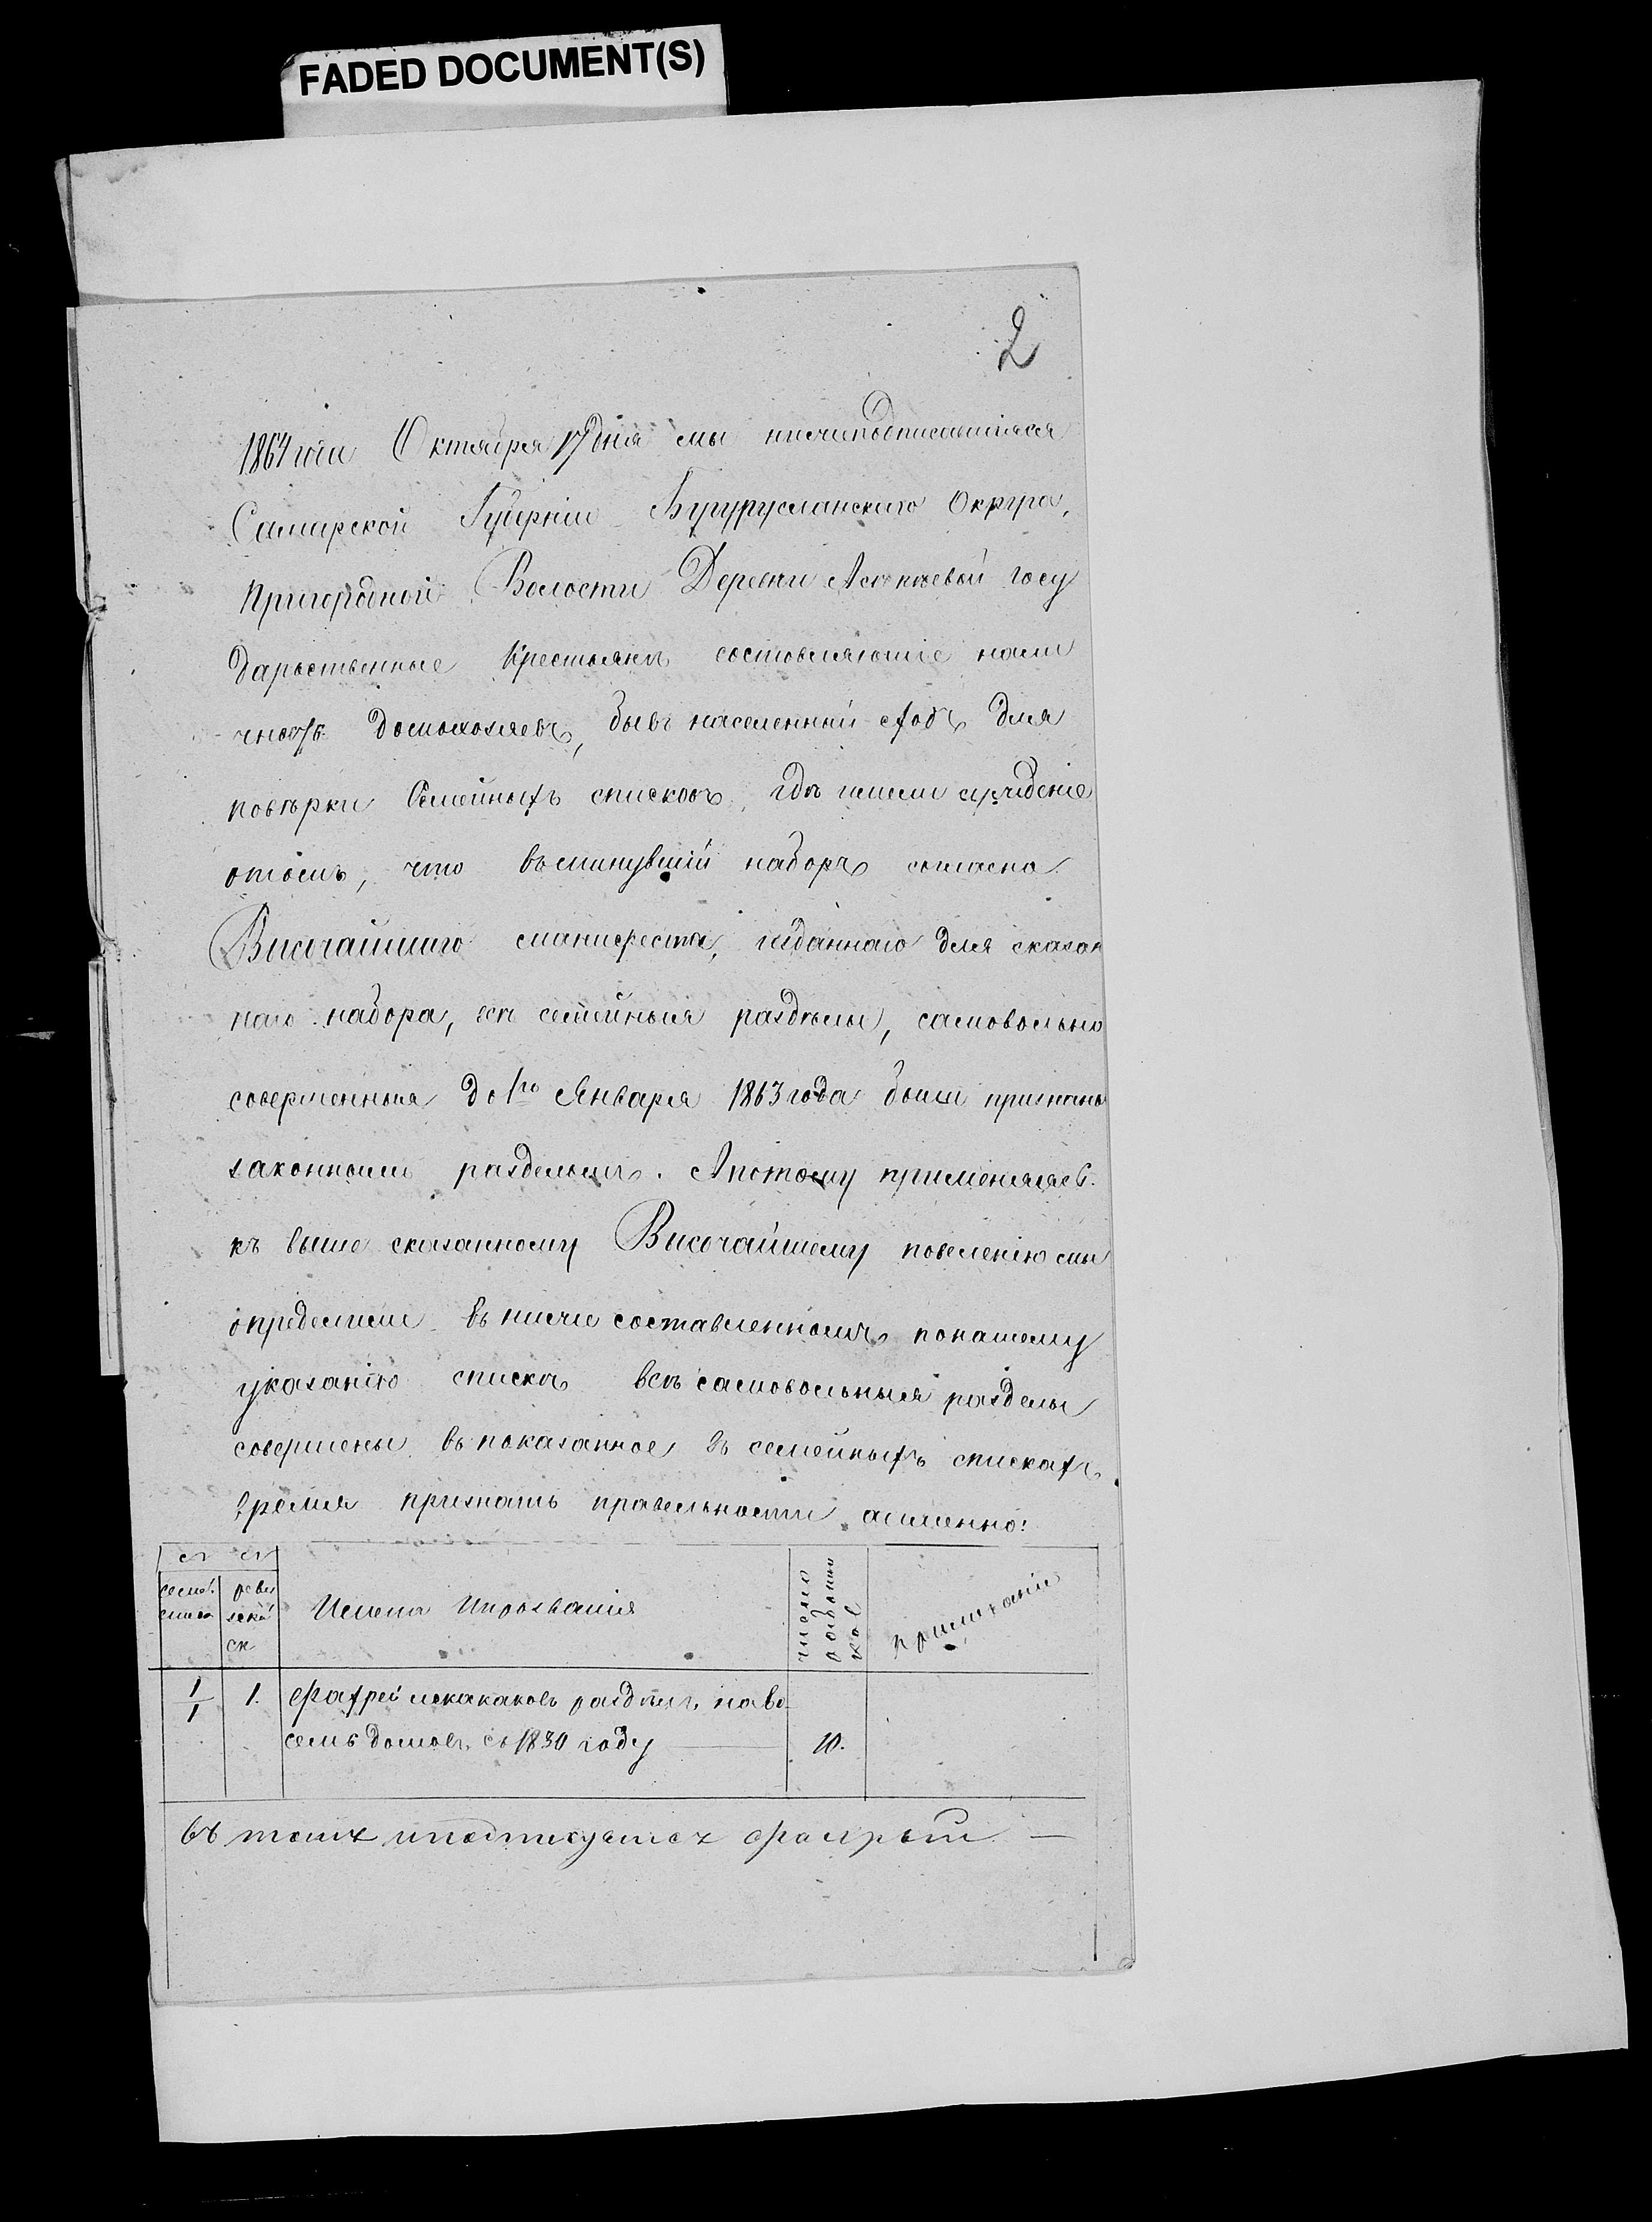 FADED DOCUMENT(S)
2
1864 года Октября 17 дня мы нижеподписавшіяся
Самарской Губерніи Бугурусланскаго Округа,
Пригородной Волости Деревни Асекаевой госу
дарственные Крестьяне состовляющіе нали
чность домохозяевъ, бывъ на селенній сходѣ для
повѣрки Семейныхъ списковъ, гдѣ имели сужденіе
отомъ, что въ минувшій наборъ согласно
Высочайшаго манифеста, изданнаго для сказан
наго набора, всѣ семейныя раздѣлы, самовольно
совершенныя до 1го Января 1863 года были признаны
законными разделами. А потому применяясь
къ выше сказанному Высочайшему повеленію мы
определили въ ниже составленномъ понашему
указанію списке всѣ самовольныя разделы
совершены въ показанное въ семейныхъ спискахъ
время признать правельности аименно:
семей. ревизска
списка ск
Имена Ипрозванія
число работни ков
примѣчаніе
1/1 1. раздѣлъ на во
семь домовъ съ 1830 году 10.
въ томъ иподпису